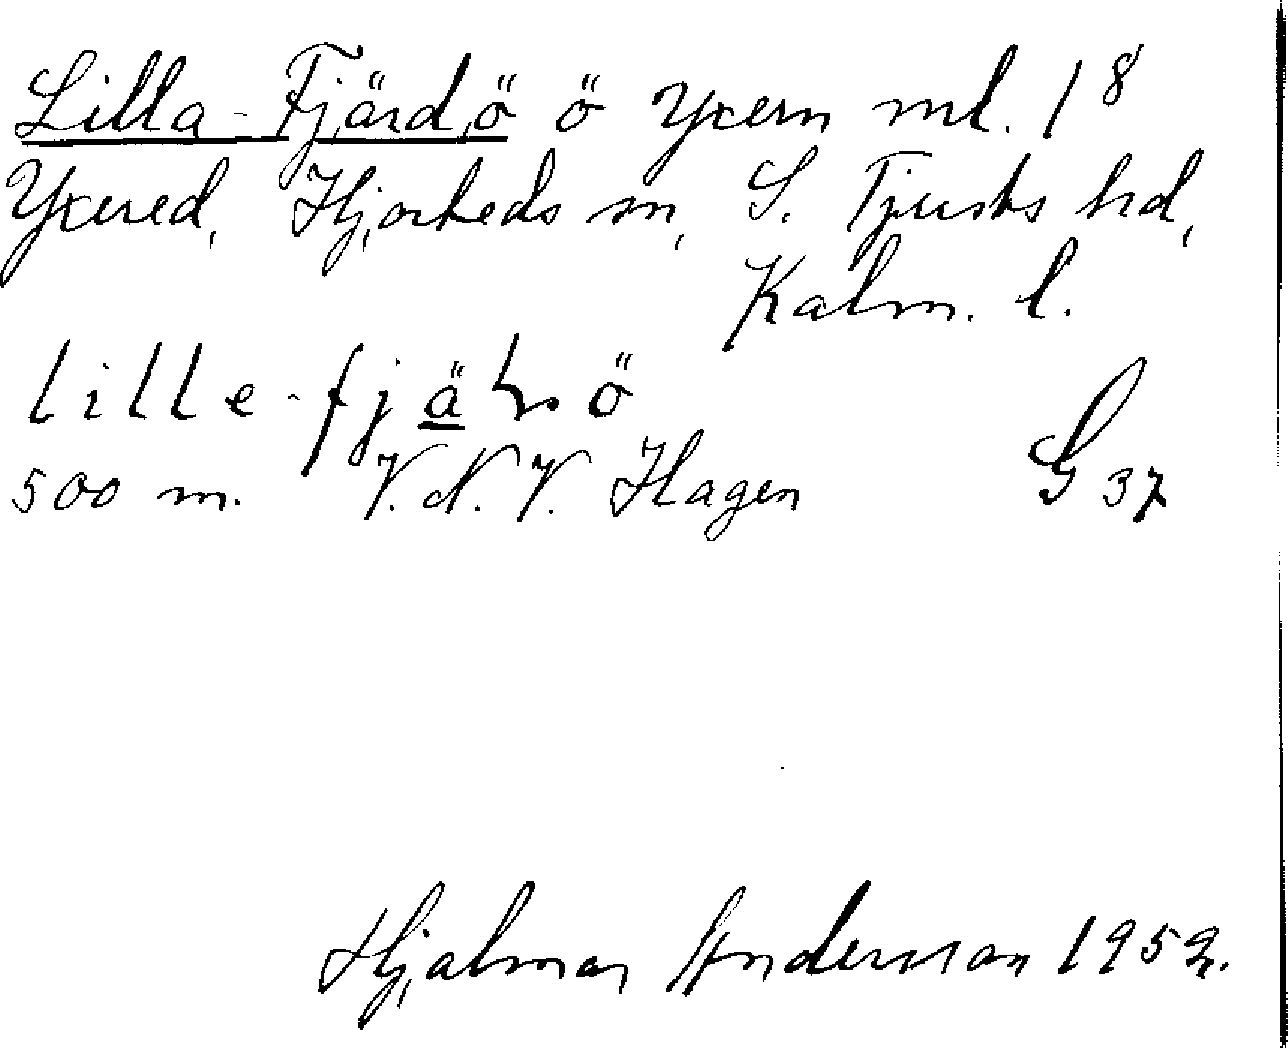 Lilla-Fjärdö ö Yxern ml. 1⁸
Yxered, Hjorteds sn, S. Tjusts hd,
Kalm. l.
lille-fjäɦö
500 m. V.N.V. Hagen G 37
Hjalmar Andersson 1959.